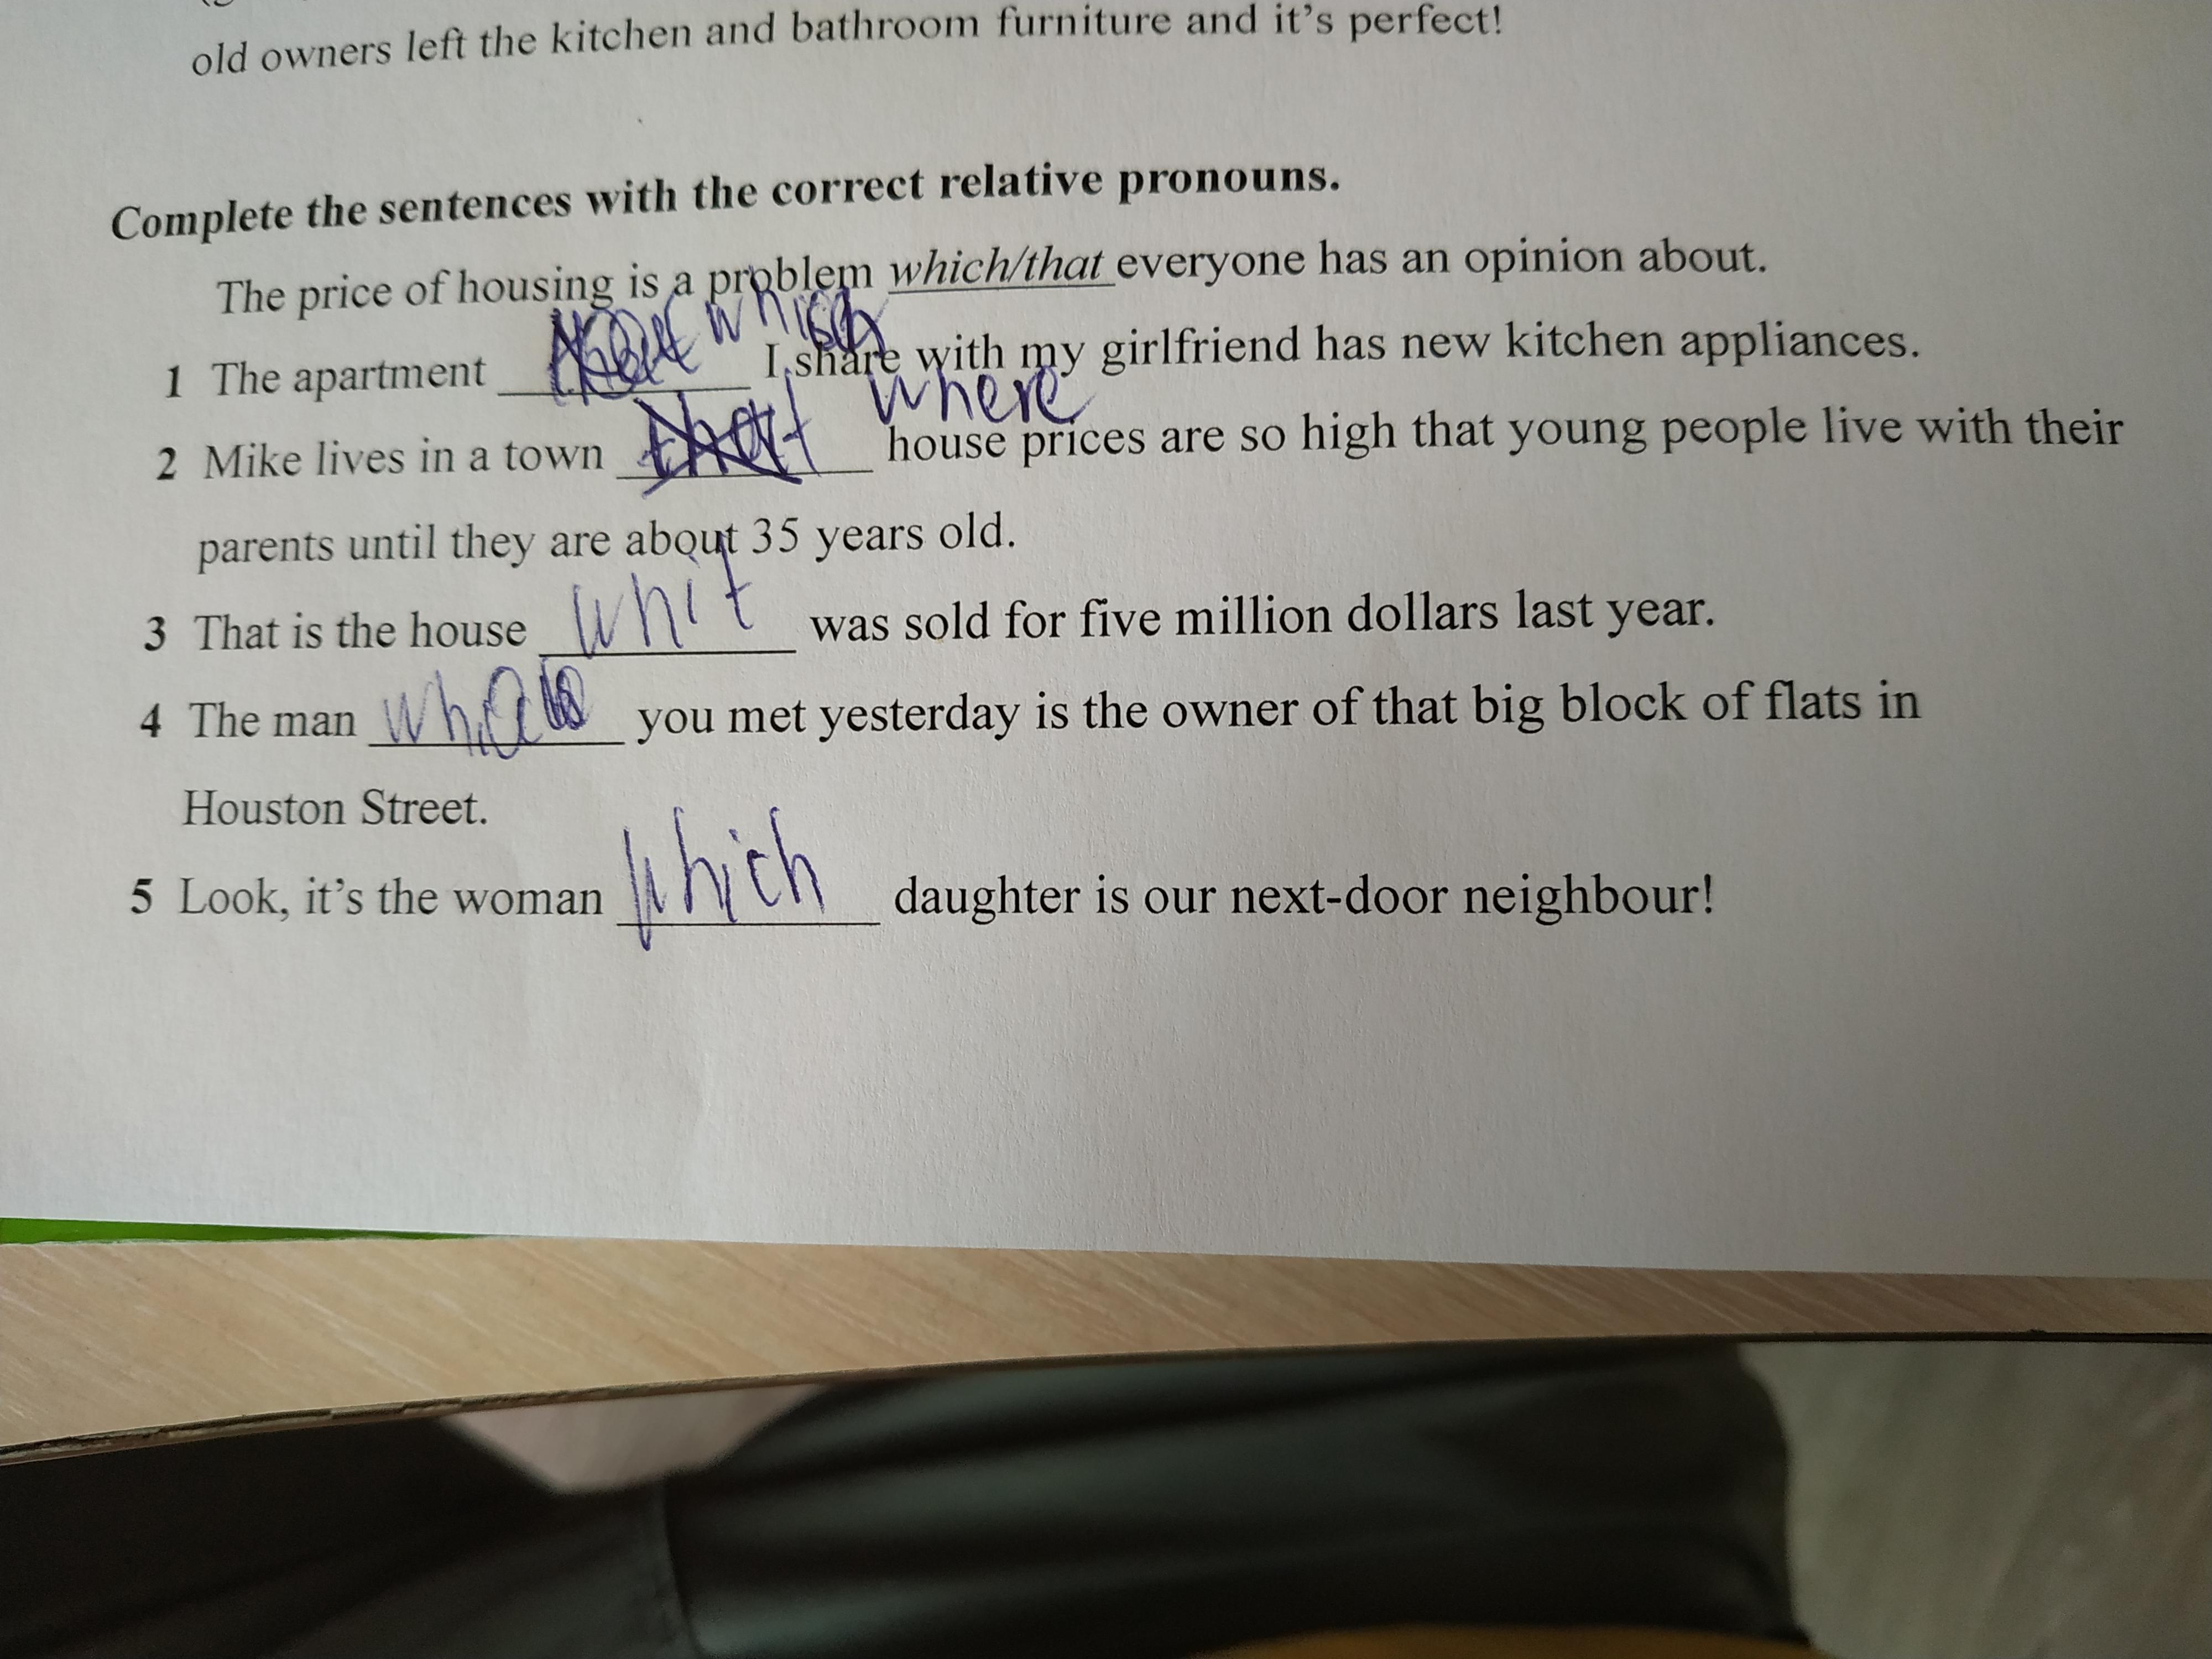 old owners left the kitchen and bathroom furniture and it's perfect!
Complete the sentences with the correct relative pronouns.
The price of housing is a problem which/that everyone has an opinion about.
which
1 The apartment I share with my girlfriend has new kitchen appliances.
where
2 Mike lives in a town that house prices are so high that young people live with their
parents until they are about 35 years old.
3 That is the house whit was sold for five million dollars last year.
4 The man you met yesterday is the owner of that big block of flats in
Houston Street.
5 Look, it's the woman which daughter is our next-door neighbour!